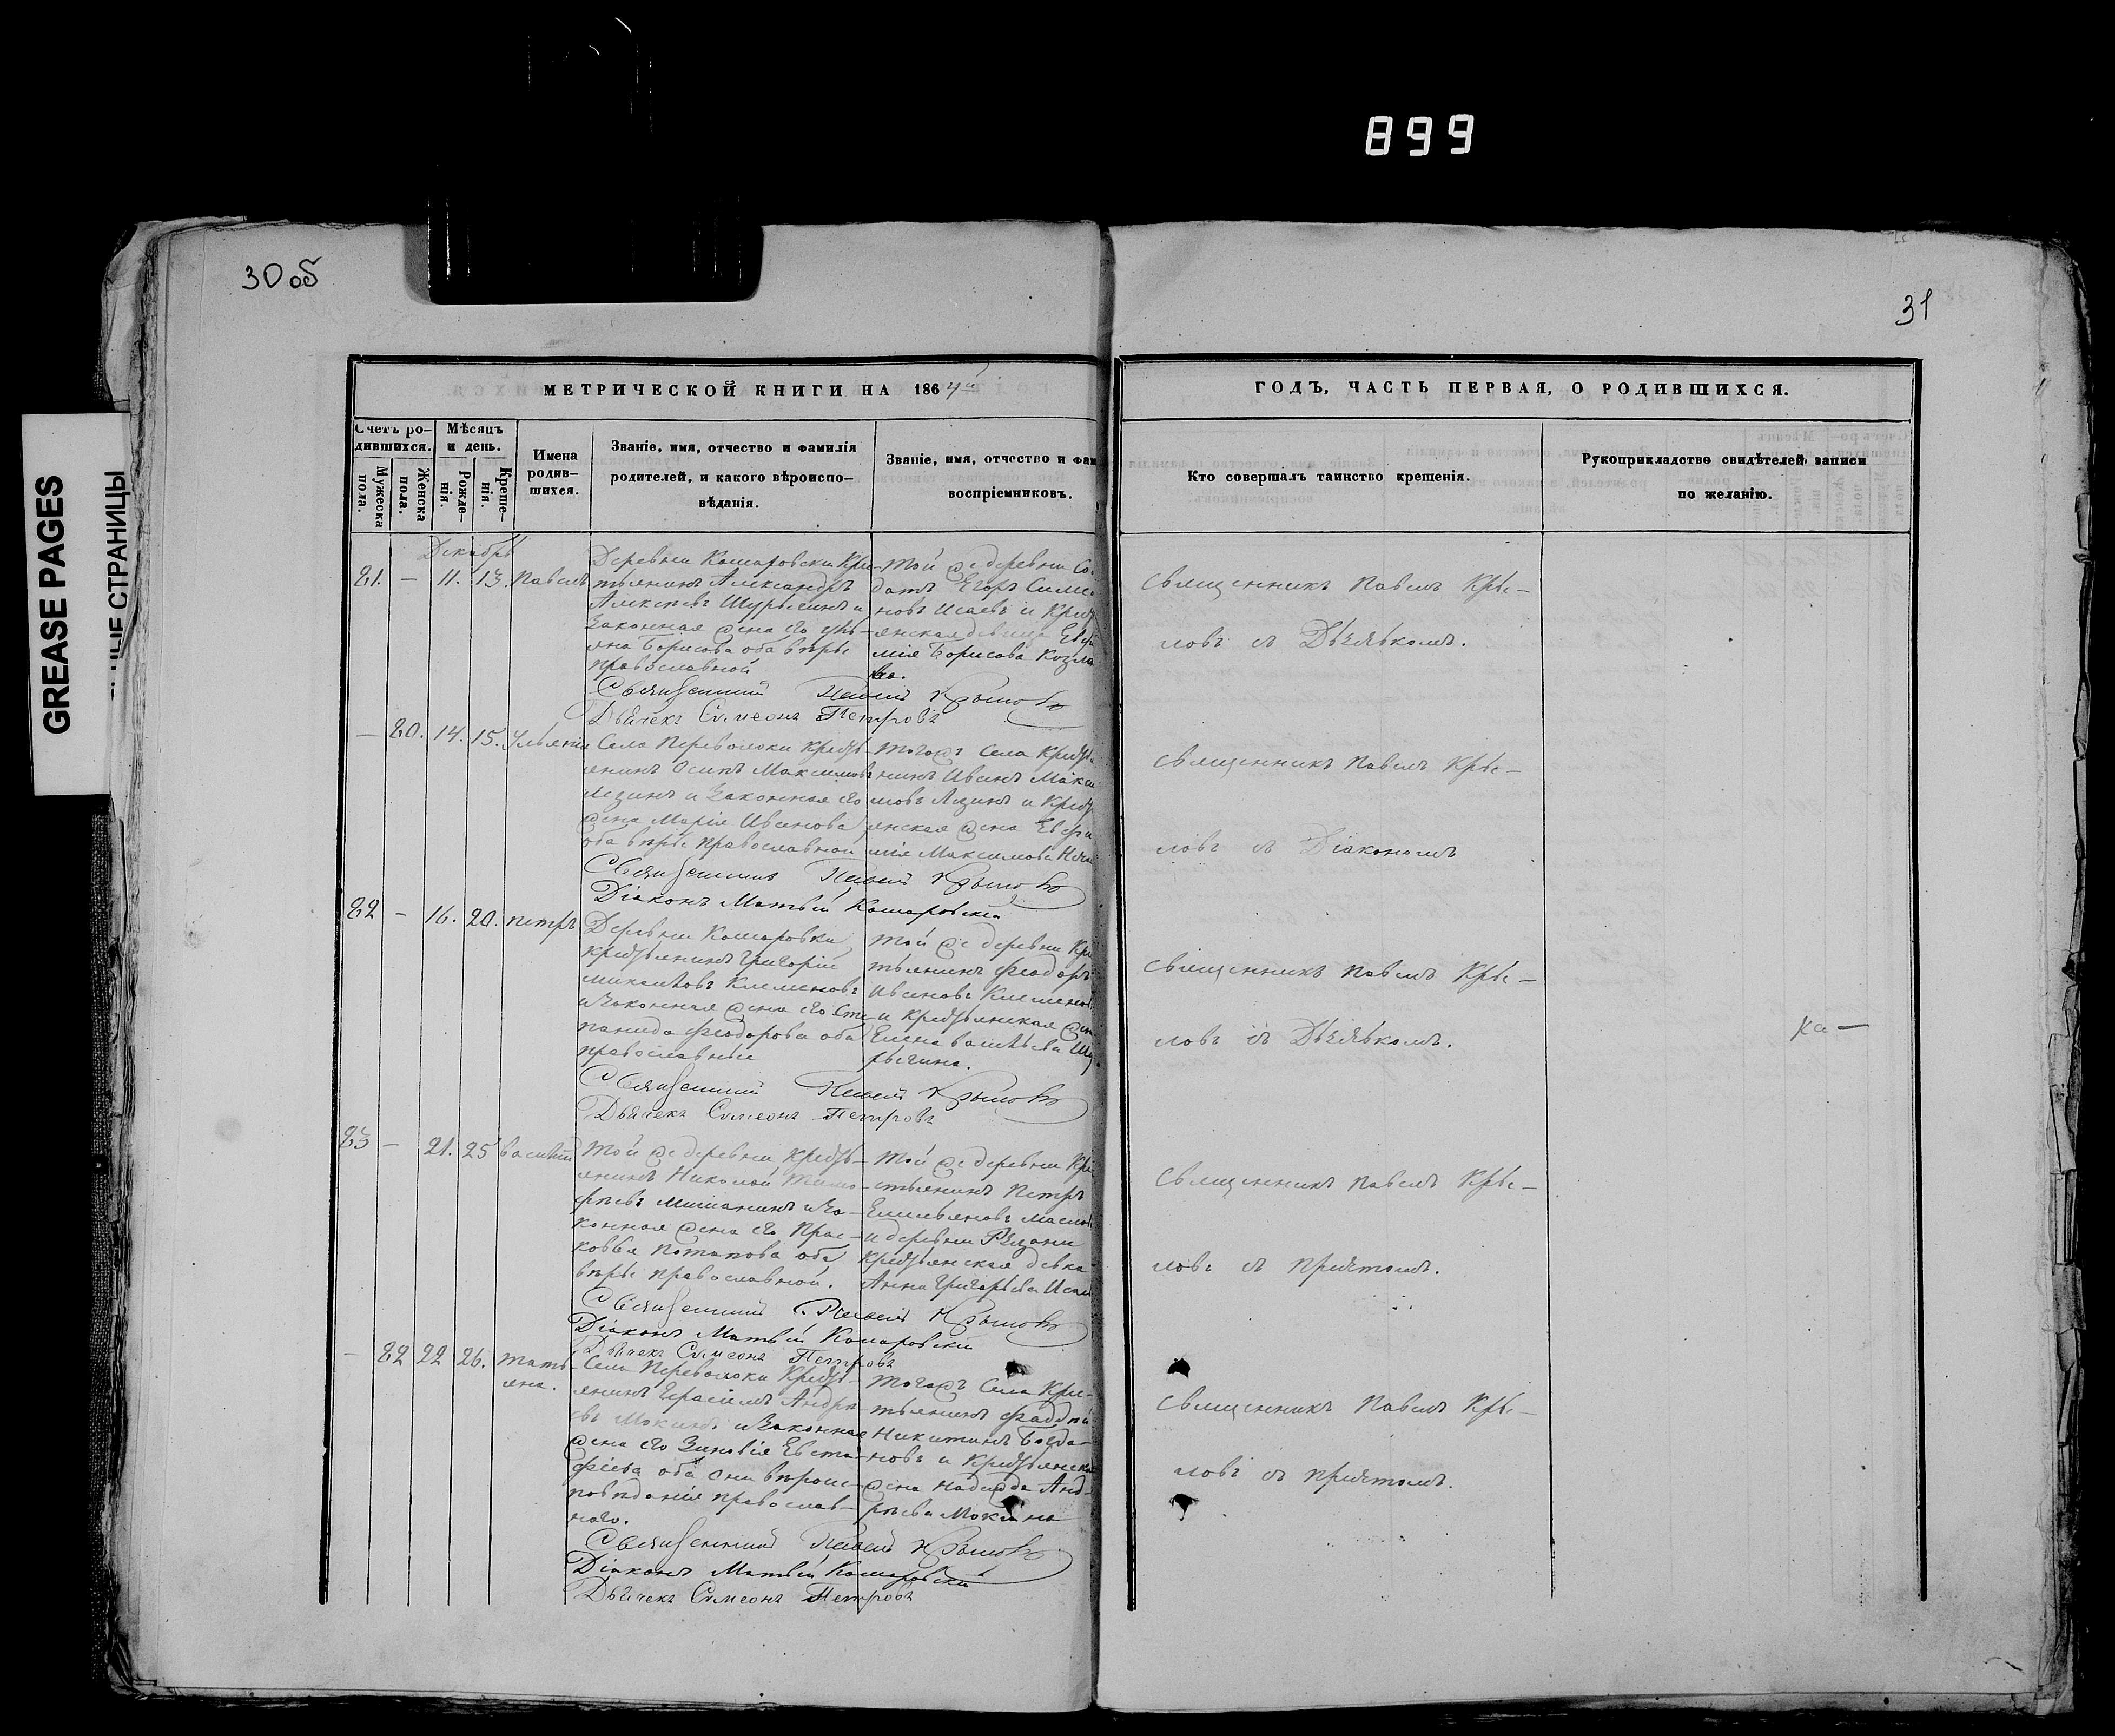 899
30 об
31
GREASE PAGES
СТРАНИЦЫ
МЕТРИЧЕСКОЙ КНИГИ НА 1864
ГОДЪ, ЧАСТЬ ПЕРВАЯ, О РОДИВШИХСЯ.
Счетъ ро-
дившихся.
Мужеска
пола.
Женска
пола.
Мѣсяцъ
и день.
Рожде-
нія.
Креще-
нія.
Имена
родив-
шихся.
Званіе, имя, отчество и фамилія
родителей, и какого вѣроиспо-
вѣданія.
Званіе, имя, отчество и фам
воспріемниковъ.
Кто совершалъ таинство крещенія.
Рукоприкладство свидѣтелей записи
по желанію.
Декабрь
81. — 11. 13. Павелъ
Деревни Комаровки Кре-
стьянинъ Александръ
Алексѣевъ и
законная жена его
Борисова оба вѣры
православной
Священникъ Павелъ Крыловъ
Дьячекъ Симеонъ Петровъ
Той же деревни Со
датъ Егоръ Симе
новъ Исаевъ и Крест
янская девица
мія Борисова Козло
ва.
Священникъ Павелъ Кры—
ловъ съ Дьячькомъ.
— 80. 14. 15. Ульянія
Села Переволоки Кресть
янинъ Осипъ Максимовъ
Лезинъ и Законная его
жена Марія Иванова
оба вѣры православной
Священникъ Павелъ Крыловъ
Діаконъ Матвѣй Комаровскій
Тогожъ Села Кресть
нинъ Иванъ Макси
мовъ и Крест
янская жена Евфи
мія Максимова
Священникъ Павелъ Кры—
ловъ съ Діакономъ
82 — 16. 20. Петръ
Деревни Комаровки
Крестьянинъ Григорій
Михайловъ Клеменовъ
и Законная жена его Сте
панида Феодорова оба
православные
Священникъ Павелъ Крыловъ
Дьячекъ Симеонъ Петровъ
Той же деревни Кре
стьянинъ Феодоръ
Ивановъ Клеменов
и Крестьянская жен
Елена Васильева

Священникъ Павелъ Кры—
ловъ съ Дьячькомъ.
83 — 21. 25 Василій
Той же деревни Кресть-
янинъ Николай Тимо-
фѣевъ Мишанинъ и За-
конная жена его Прас-
ковья Потапова оба
вѣры православной.
Священникъ Павелъ Крыловъ
Діаконъ Матвѣй Комаровскій
Дьячекъ Симеонъ Петровъ
Той же деревни Кре
стьянинъ Петръ
Емельяновъ Маслов
и деревни Рязани
Крестьянская девка
Анна Григорьева
Священникъ Павелъ Кры—
ловъ съ причтомъ.
— 82 22 26. Тать-
яна.
Села Переволоки Кресть-
янинъ Герасимъ Андре
евъ Мокинъ и Законная
жена его Зиновія Евста-
фіева оба они вѣроис-
повѣданія православ-
наго.
Священникъ Павелъ Крыловъ
Діаконъ Матвѣй Комаровскій
Дьячекъ Симеонъ Петровъ
Тогожъ Села Кре-
стьянинъ Фаддѣй
Никитинъ Богда-
новъ и Крестьянска
жена Надежда Анд-
рѣева Мокина
Священникъ Павелъ Кры—
ловъ съ причтомъ.